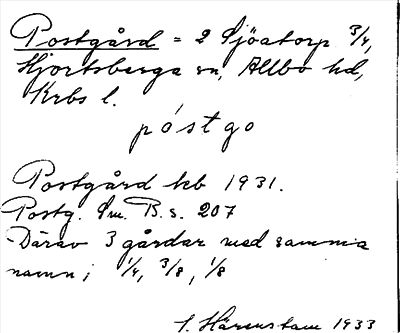 Postgård = 2 Sjöatorp 3/4,
Hjortsberga sn, Allbo hd,
Krbs l.
póstgo
Postgård kb 1931.
Postg. Sm. B. s. 207
Därav 3 gårdar med samma
namn; 1/4, 3/8, 1/8
S. Härenstam 1933